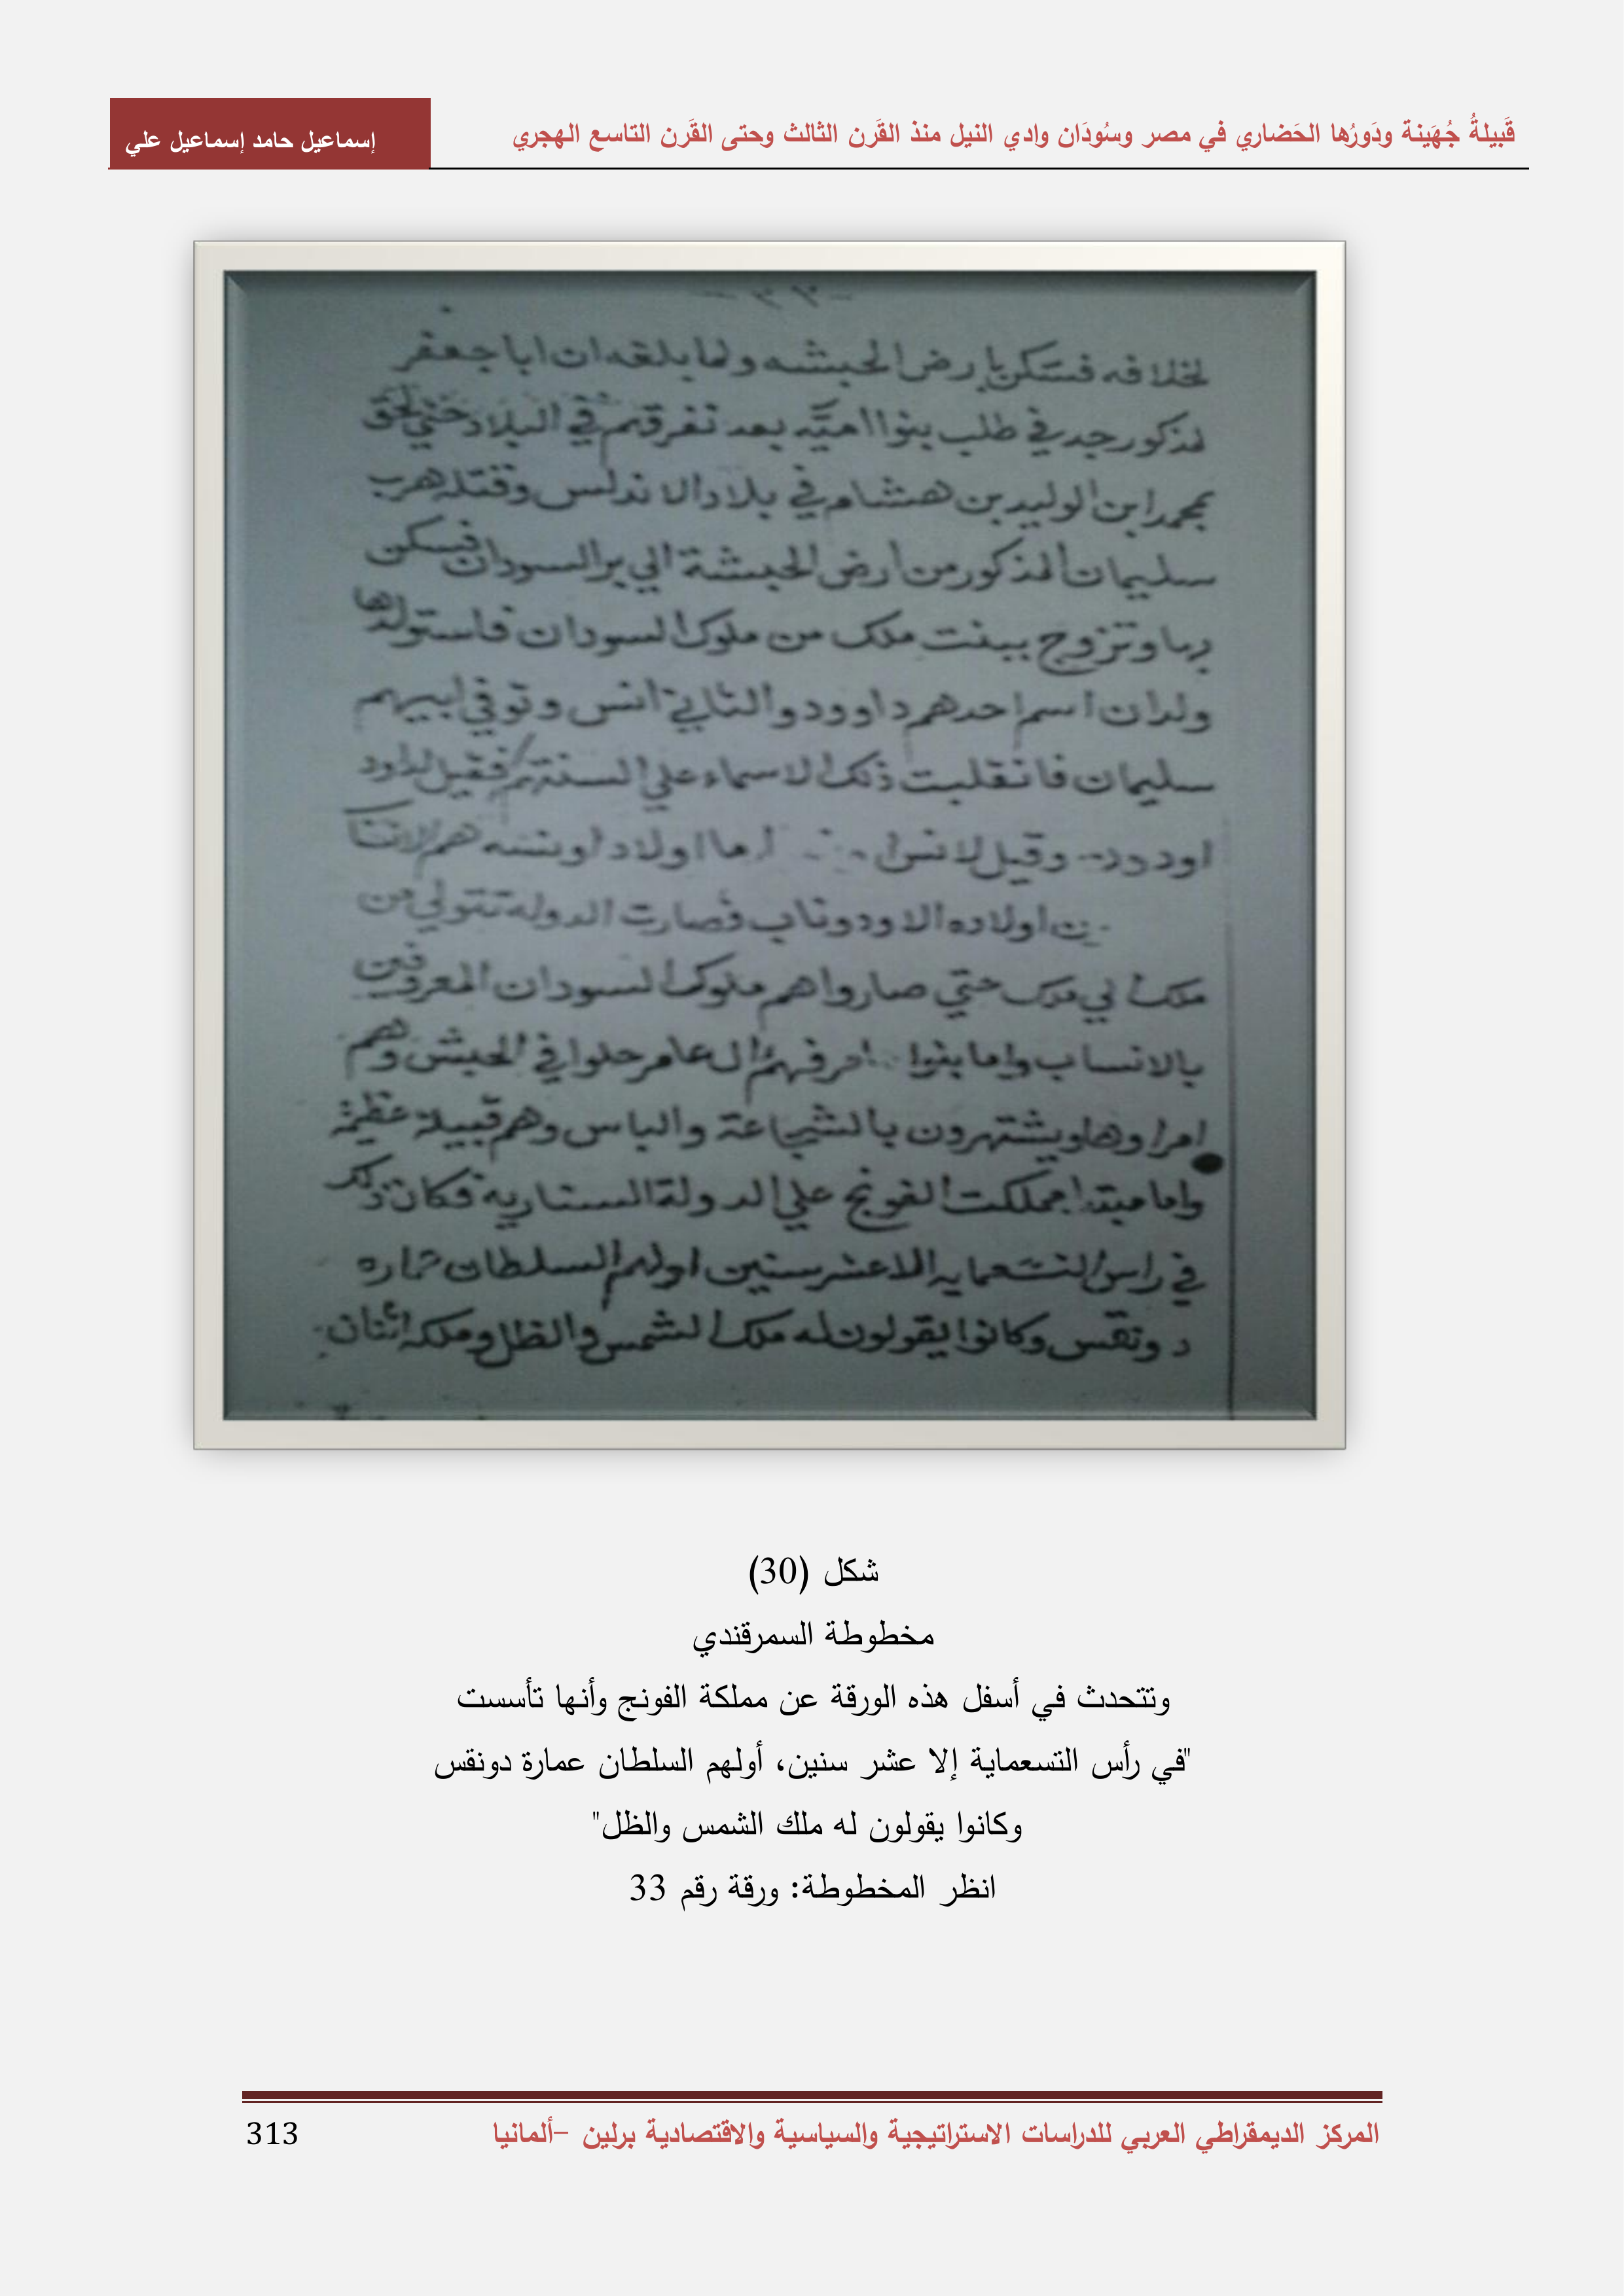 قَبيلةُ جُهَينة ودَورُها الحَضاري في مصر وسُودَان وادي النيل منذ القَرن الثالث وحتى القَرن التاسع الهجري
إسماعيل حامد إسماعيل علي
-٣٣-
لخلافه فسكن بارض الحبشه ولما بلغه ان ابا جعفر
لمذكور جد في طلب بنوا اميّه بعد تفرقهم في البلاد حتي لحق
بمحمد ابن الوليد بن هشام في بلاد الاندلس وقتله هرب
سليمان المذكور من ارض الحبشة الي بر السودان فسكن
بها وتزوج ببنت ملك من ملوك السودان فاستولدها
ولدان اسم احدهم داوود والثاني انس وتوفي ابيهم
سليمان فانقلبت ذلك الاسماء علي السنتهم فقيل لداود
اودود وقيل لانس اما اولاد اونسه هم
اولاده الاودوناب فصارت الدوله تتولي من
ملك الي ملك حتي صاروا هم ملوك السودان المعروفين
بالانساب واما بنوا فهم ال عامر حلوا في الحبش وهم
امراوها ويشتهرون بالشجاعة والباس وهم قبيلة عظيمة
واما مبتدا مملكت الفونج علي الدولة السناريه فكان ذلك
في راس التسعمايه الا عشر سنين اولهم السلطان عماره
دونقس وكانوا يقولون له ملك الشمس والظل وملكه اثنان
شكل (30)
مخطوطة السمرقندي
وتتحدث في أسفل هذه الورقة عن مملكة الفونج وأنها تأسست
"في رأس التسعماية إلا عشر سنين، أولهم السلطان عمارة دونقس
وكانوا يقولون له ملك الشمس والظل"
انظر المخطوطة: ورقة رقم 33
المركز الديمقراطي العربي للدراسات الاستراتيجية والسياسية والاقتصادية برلين –ألمانيا
313